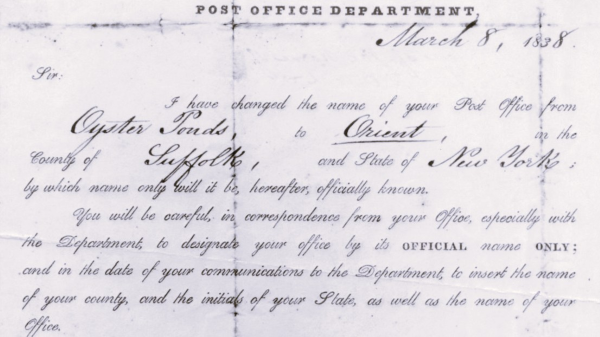 POST OFFICE DEPARTMENT,
March 8, 1838.
Sir:
I have changed the name of your Post Office from
Oyster Ponds, to Orient, in the
County of Suffolk, and State of New York;
by which name only will it be, hereafter, officially known.
You will be careful, in correspondence from your Office, especially with
the Department, to designate your office by its OFFICIAL name ONLY;
and in the date of your communications to the Department, to insert the name
of your county, and the initials of your State, as well as the name of your
Office.